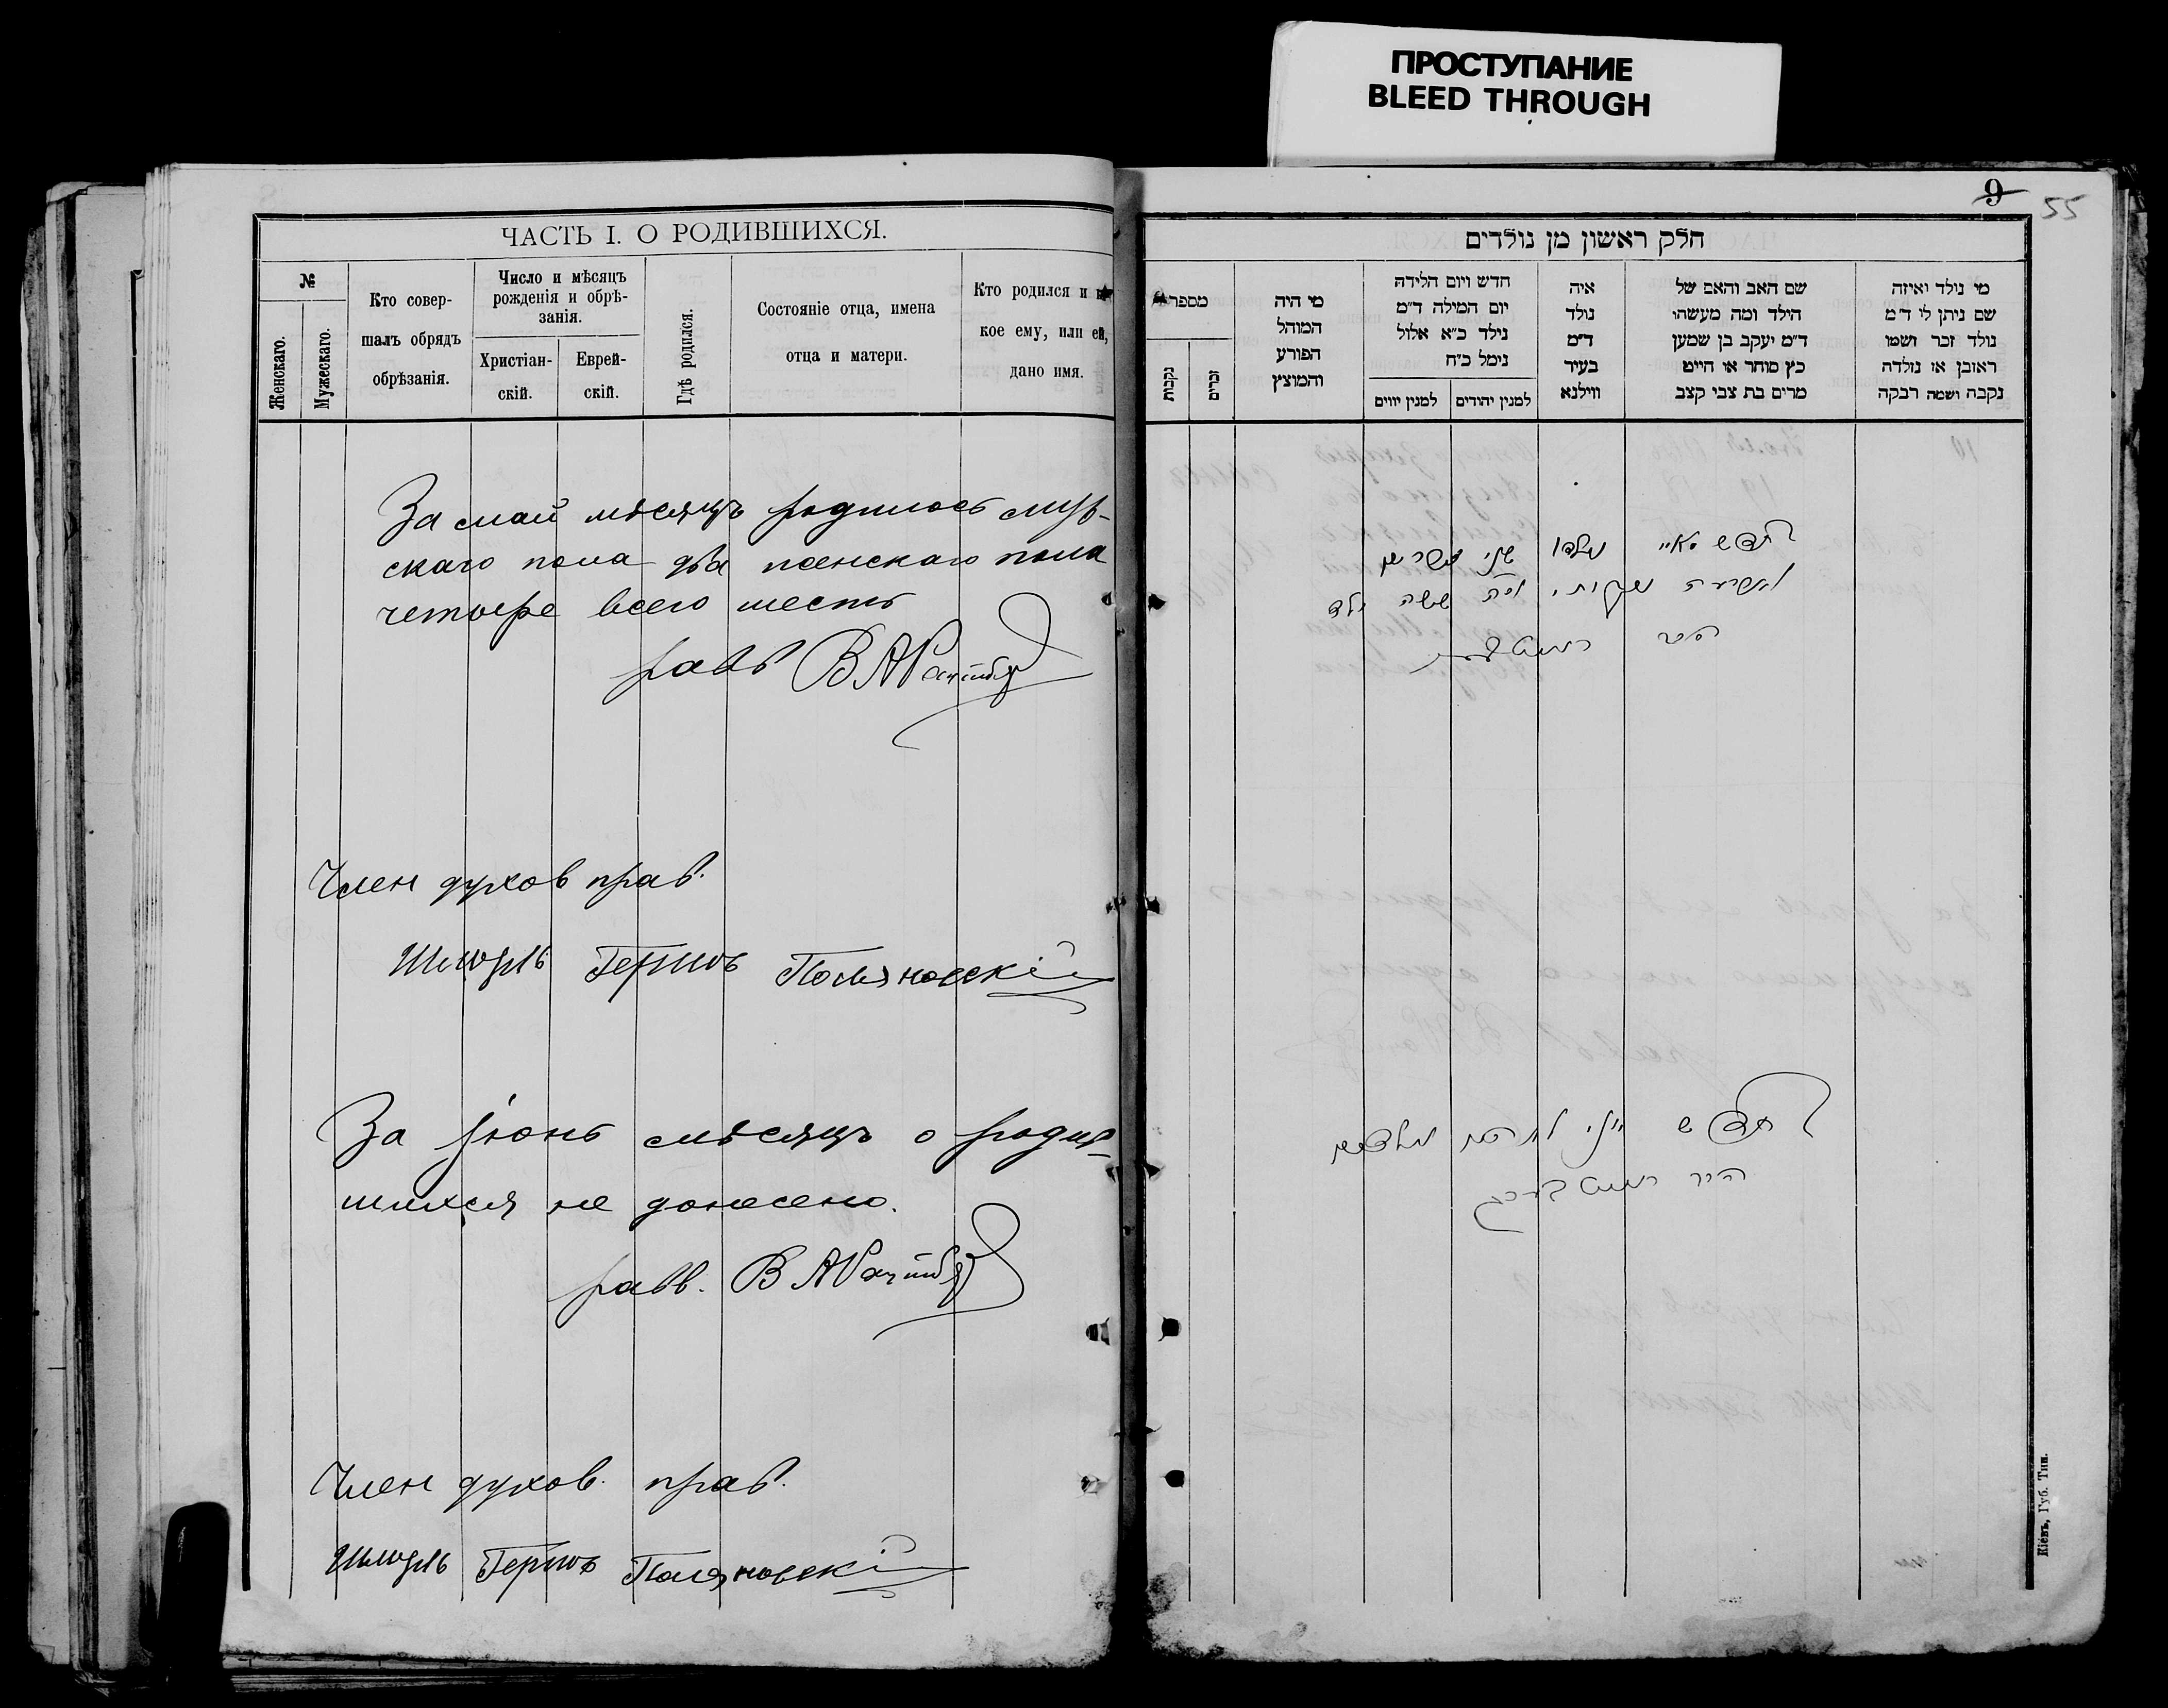 ПРОСТУПАНИЕ
BLEED THROUGH
ЧАСТЬ I. О РОДИВШИХСЯ.
№
Женскаго.
Мужескаго.
Кто совер-
шалъ обрядъ
обрѣзанія.
Число и мѣсяцъ
рожденія и обрѣ-
занія.
Христіан-
скій.
Еврей-
скій.
Гдѣ родился.
Состояніе отца, имена
отца и матери.
Кто родился и
кое ему, или ей,
дано имя.
За май мѣсяцъ родилось муж-
скаго пола два женскаго пола
четыре всего шесть
равв В А
Член духов прав.
Шмуль Гершов Поляновскій
За іюнь мѣсяцъ о родив-
шихся не донесено.
равв. В А
Член духов. прав.
Шмуль Гершов Поляновскій
9
55
חלק ראשון מן נולדים
מספר
נקבות
זכרים
מי היה
המוהל
הפורע
והמוצץ
חדש ויום הלידה
יום המילה ד״מ
נילד כ״א אלול
נימל כ״ח
למנין יווים
למנין יהודים
איה
נולד
ד״מ
בעיר
ווילנא
שם האב והאם של
הילד ומה מעשהו
ד״מ יעקב בן שמען
כץ סוחר או חייט
מרים בת צבי קצב
מי נולד ואיזה
שם ניתן לי ד״מ
נולד זכר ושמו
ראובן או נולדה
נקבה ושמה רבקה
לחדש מאיי נולדו שני זכרים
וארבעה נקבות ששה ילד
לחדש יוני לא נולדים
Кіевъ, Губ. Тип.